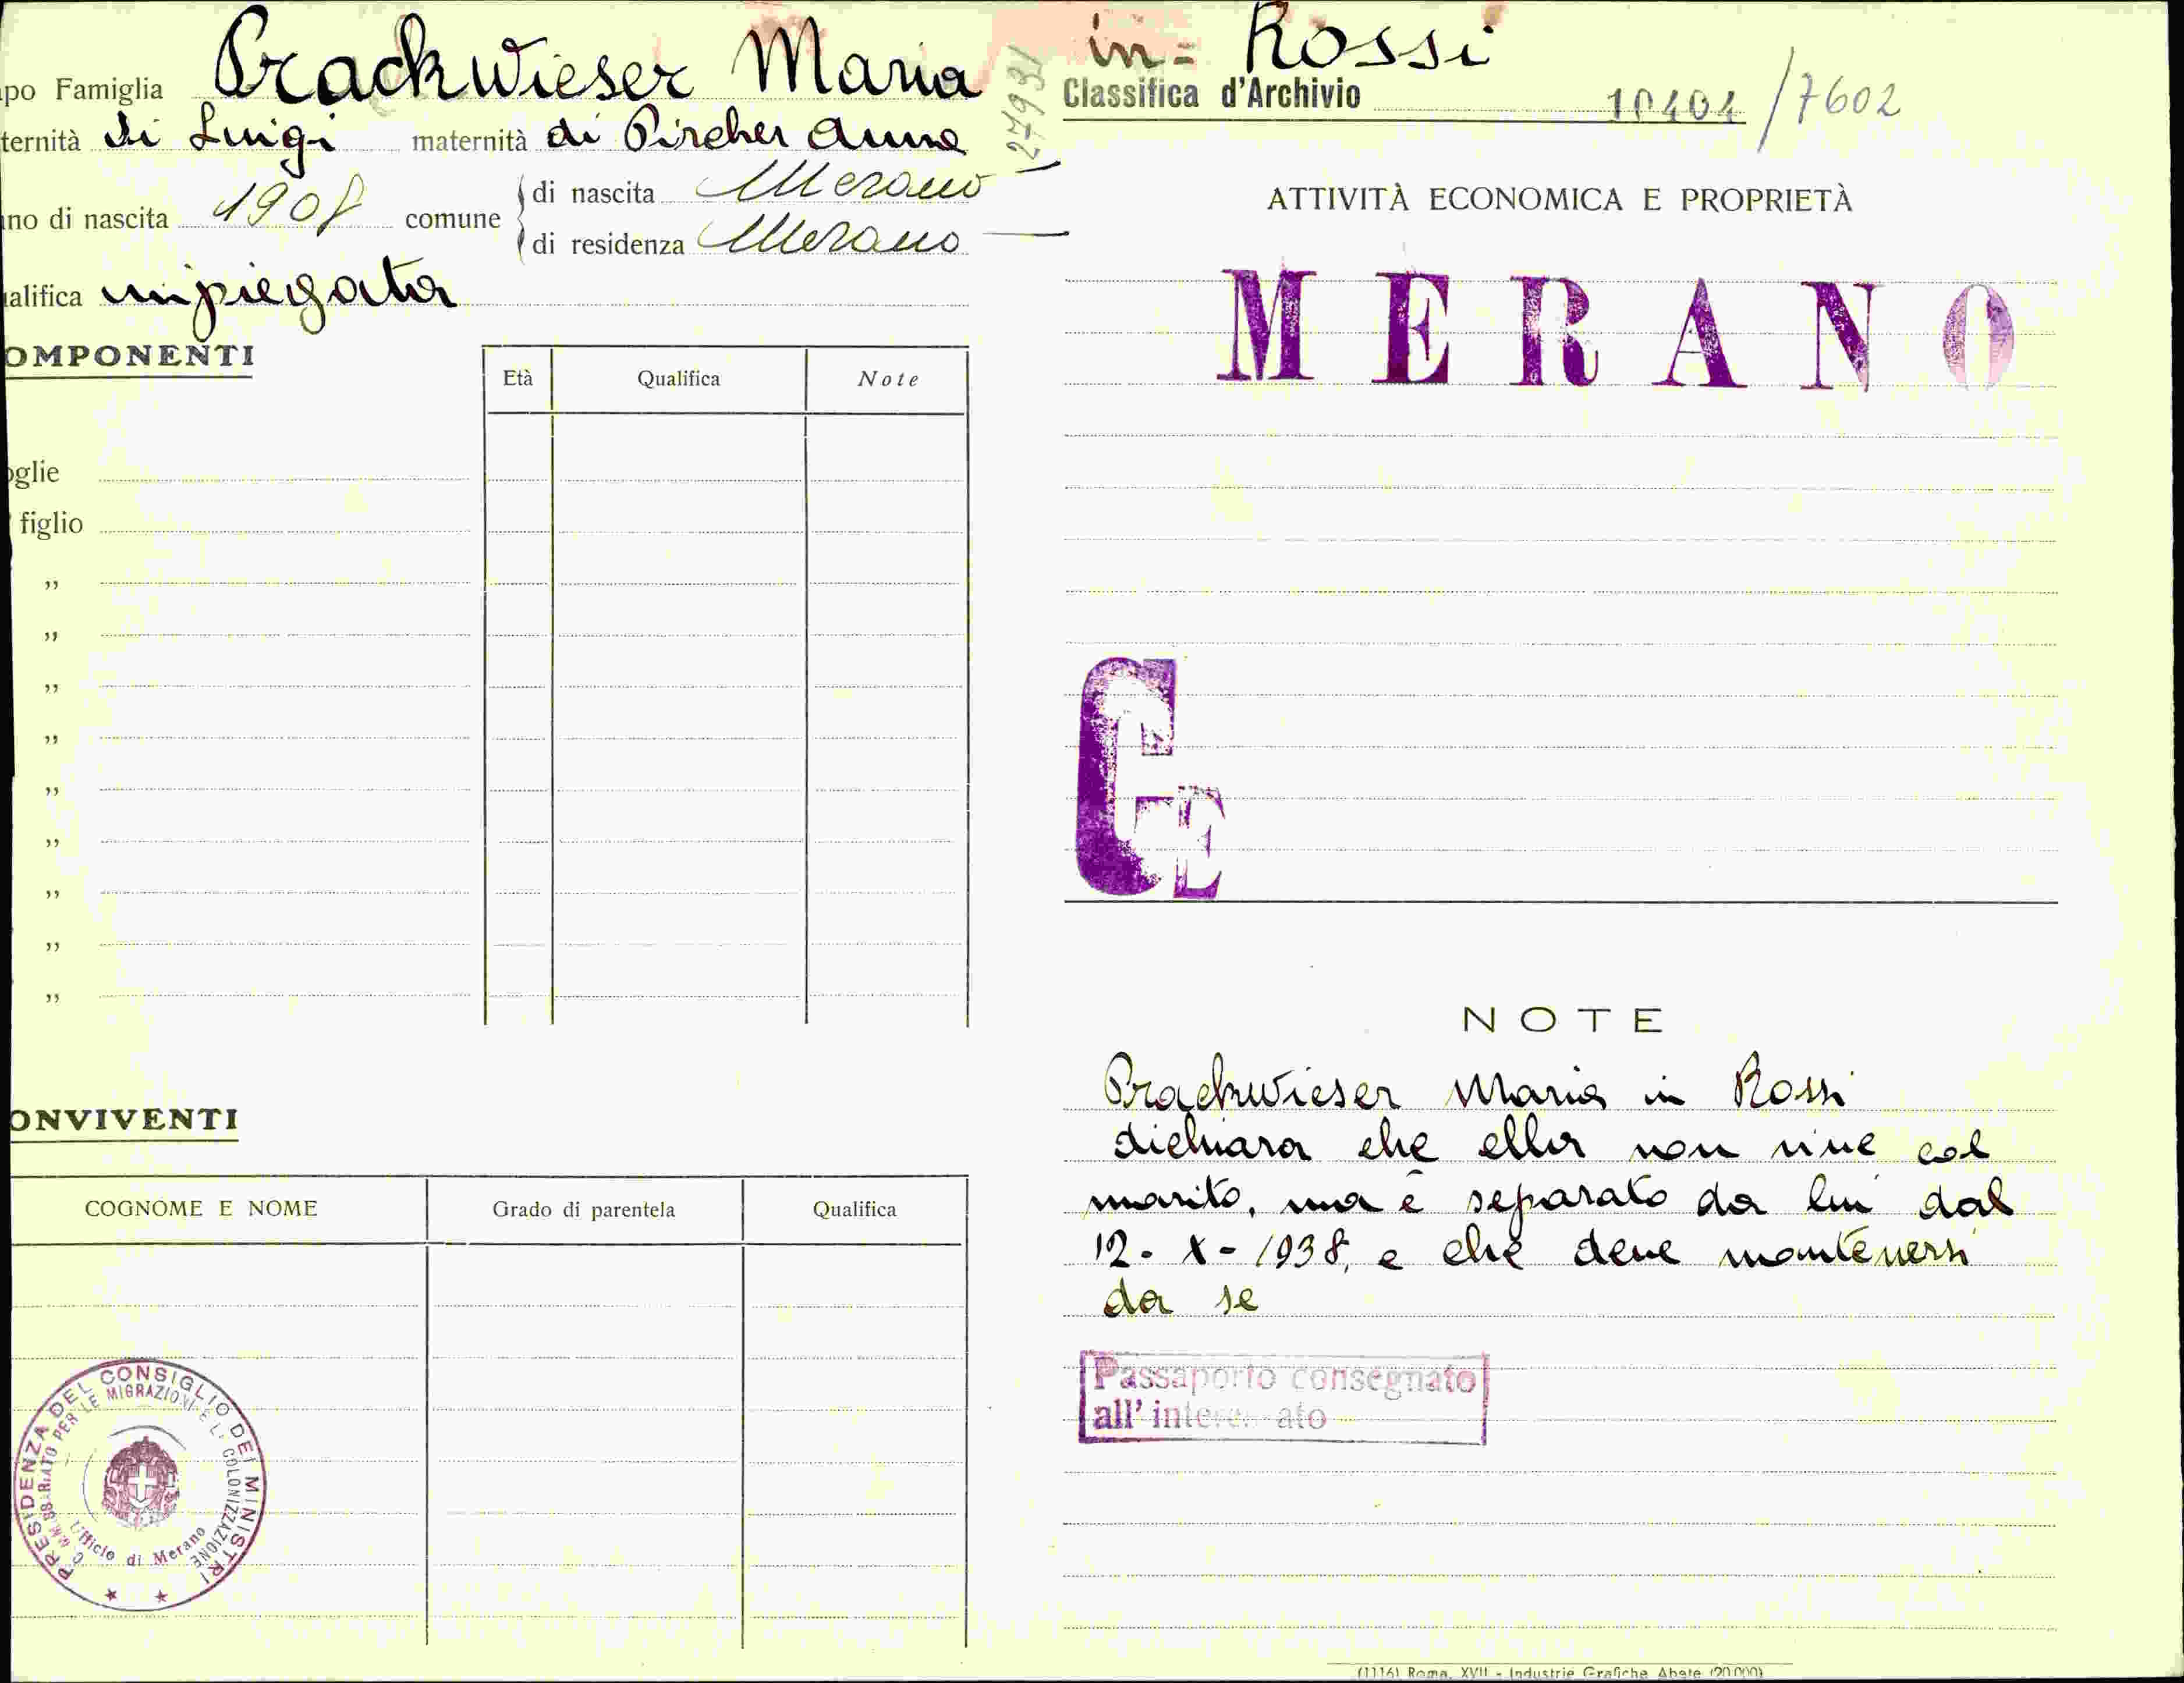 po Famiglia Prackwieser Maria in = Rossi
27931
Classifica d'Archivio 10404 / 7602
ternità di Luigi maternità di Pircher Anna
no di nascita 1908 comune
di nascita Merano
di residenza Merano
alifica impiegata
ATTIVITÀ ECONOMICA E PROPRIETÀ
MERANO
OMPONENTI
Età Qualifica Note
oglie
figlio
„
„
„
„
„
„
„
„
„
NOTE
Prackwieser Maria in Rossi
dichiara che ella non vive col
marito, ma è separato da lui dal
12 - X - 1938, e che deve mantenersi
da se
Passaporto consegnato
all'
ONVIVENTI
COGNOME E NOME Grado di parentela Qualifica
PRESIDENZA DEL CONSIGLIO DEI MINISTRI
COMMISSARIATO PER LE MIGRAZIONI E LA COLONIZZAZIONE
Ufficio di Merano
(1116) Roma, XVII - Industrie Grafiche Abete (20.000)